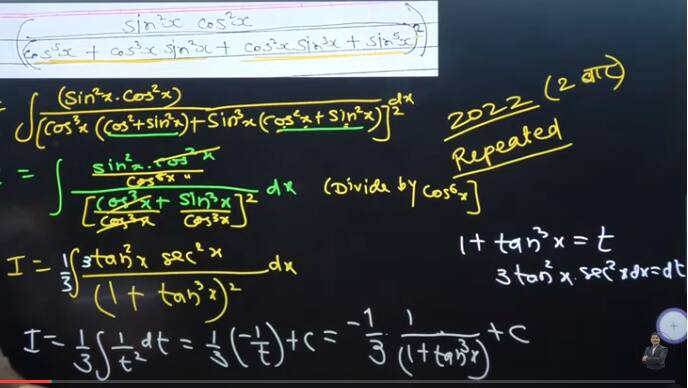 ( sin²x cos²x / (cos⁵x + cos³x sin²x + cos²x sin³x + sin⁵x)² )
= ∫ (sin²x·cos²x) / [cos³x (cos²x+sin²x)+sin³x(cos²x+sin²x)]² dx
2022 (2 बार)
Repeated
= ∫ (sin²x·cos²x / cos⁶x) / [cos³x/cos³x + sin³x/cos³x]² dx (Divide by cos⁶x]
1 + tan³x = t
3tan²x·sec²x dx = dt
I = 1/3 ∫ 3tan²x sec²x / (1 + tan³x)² dx
I = 1/3 ∫ 1/t² dt = 1/3 (-1/t) + c = -1/3 · 1/(1+tan³x) + c